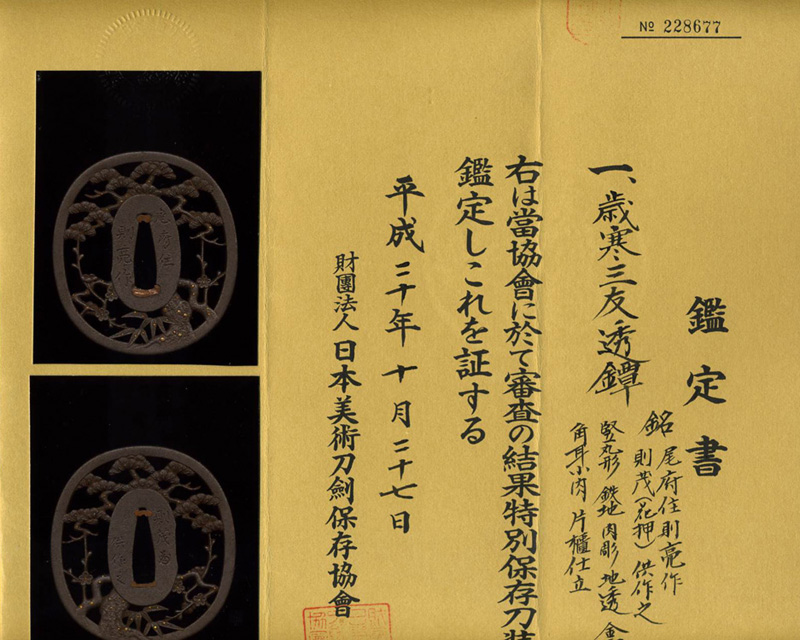 № 228677
鑑定書
一、歳寒三友透鐔
銘 尾府住則亮作
則茂(花押) 供作之
竪丸形 鉄地 肉彫 地透
角耳小肉 片櫃仕立
右は當協會に於て審査の結果特別保存刀装
鑑定しこれを証する
平成二十年十月二十七日
財團法人日本美術刀劍保存協會